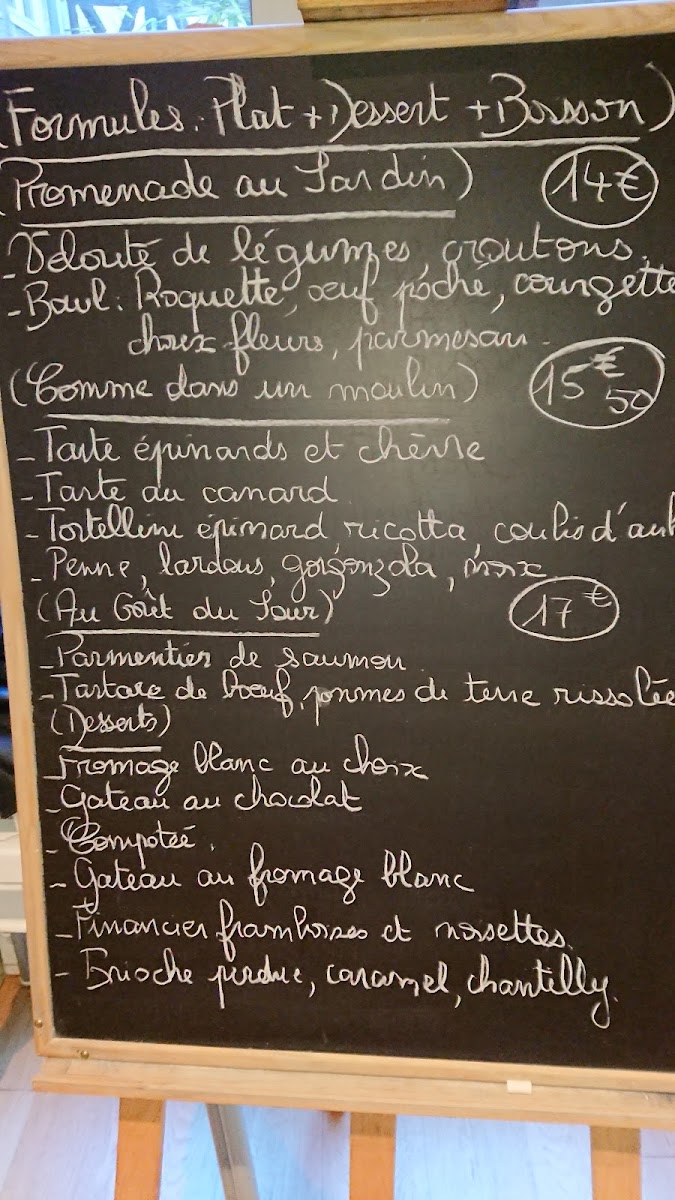 (Formules: Plat + Dessert + Boisson)
(Promenade au Jardin) 14€
- Velouté de légumes, croutons.
- Bowl: Roquette, œuf poché, courgette
choux-fleurs, parmesan.
(Comme dans un moulin) 15€50
- Tarte épinards et chèvre
- Tarte au canard
- Tortellini épinard ricotta, coulis d'
- Penne, lardons, gorgonzola, noix
(Au Goût du Jour) 17€
- Parmentier de saumon
- Tartare de bœuf, pommes de terre rissolée
(Desserts)
- Fromage blanc au choix
- Gateau au chocolat
- Compotée.
- Gateau au fromage blanc
- Financier framboises et noisettes.
- Brioche perdue, caramel, chantilly.